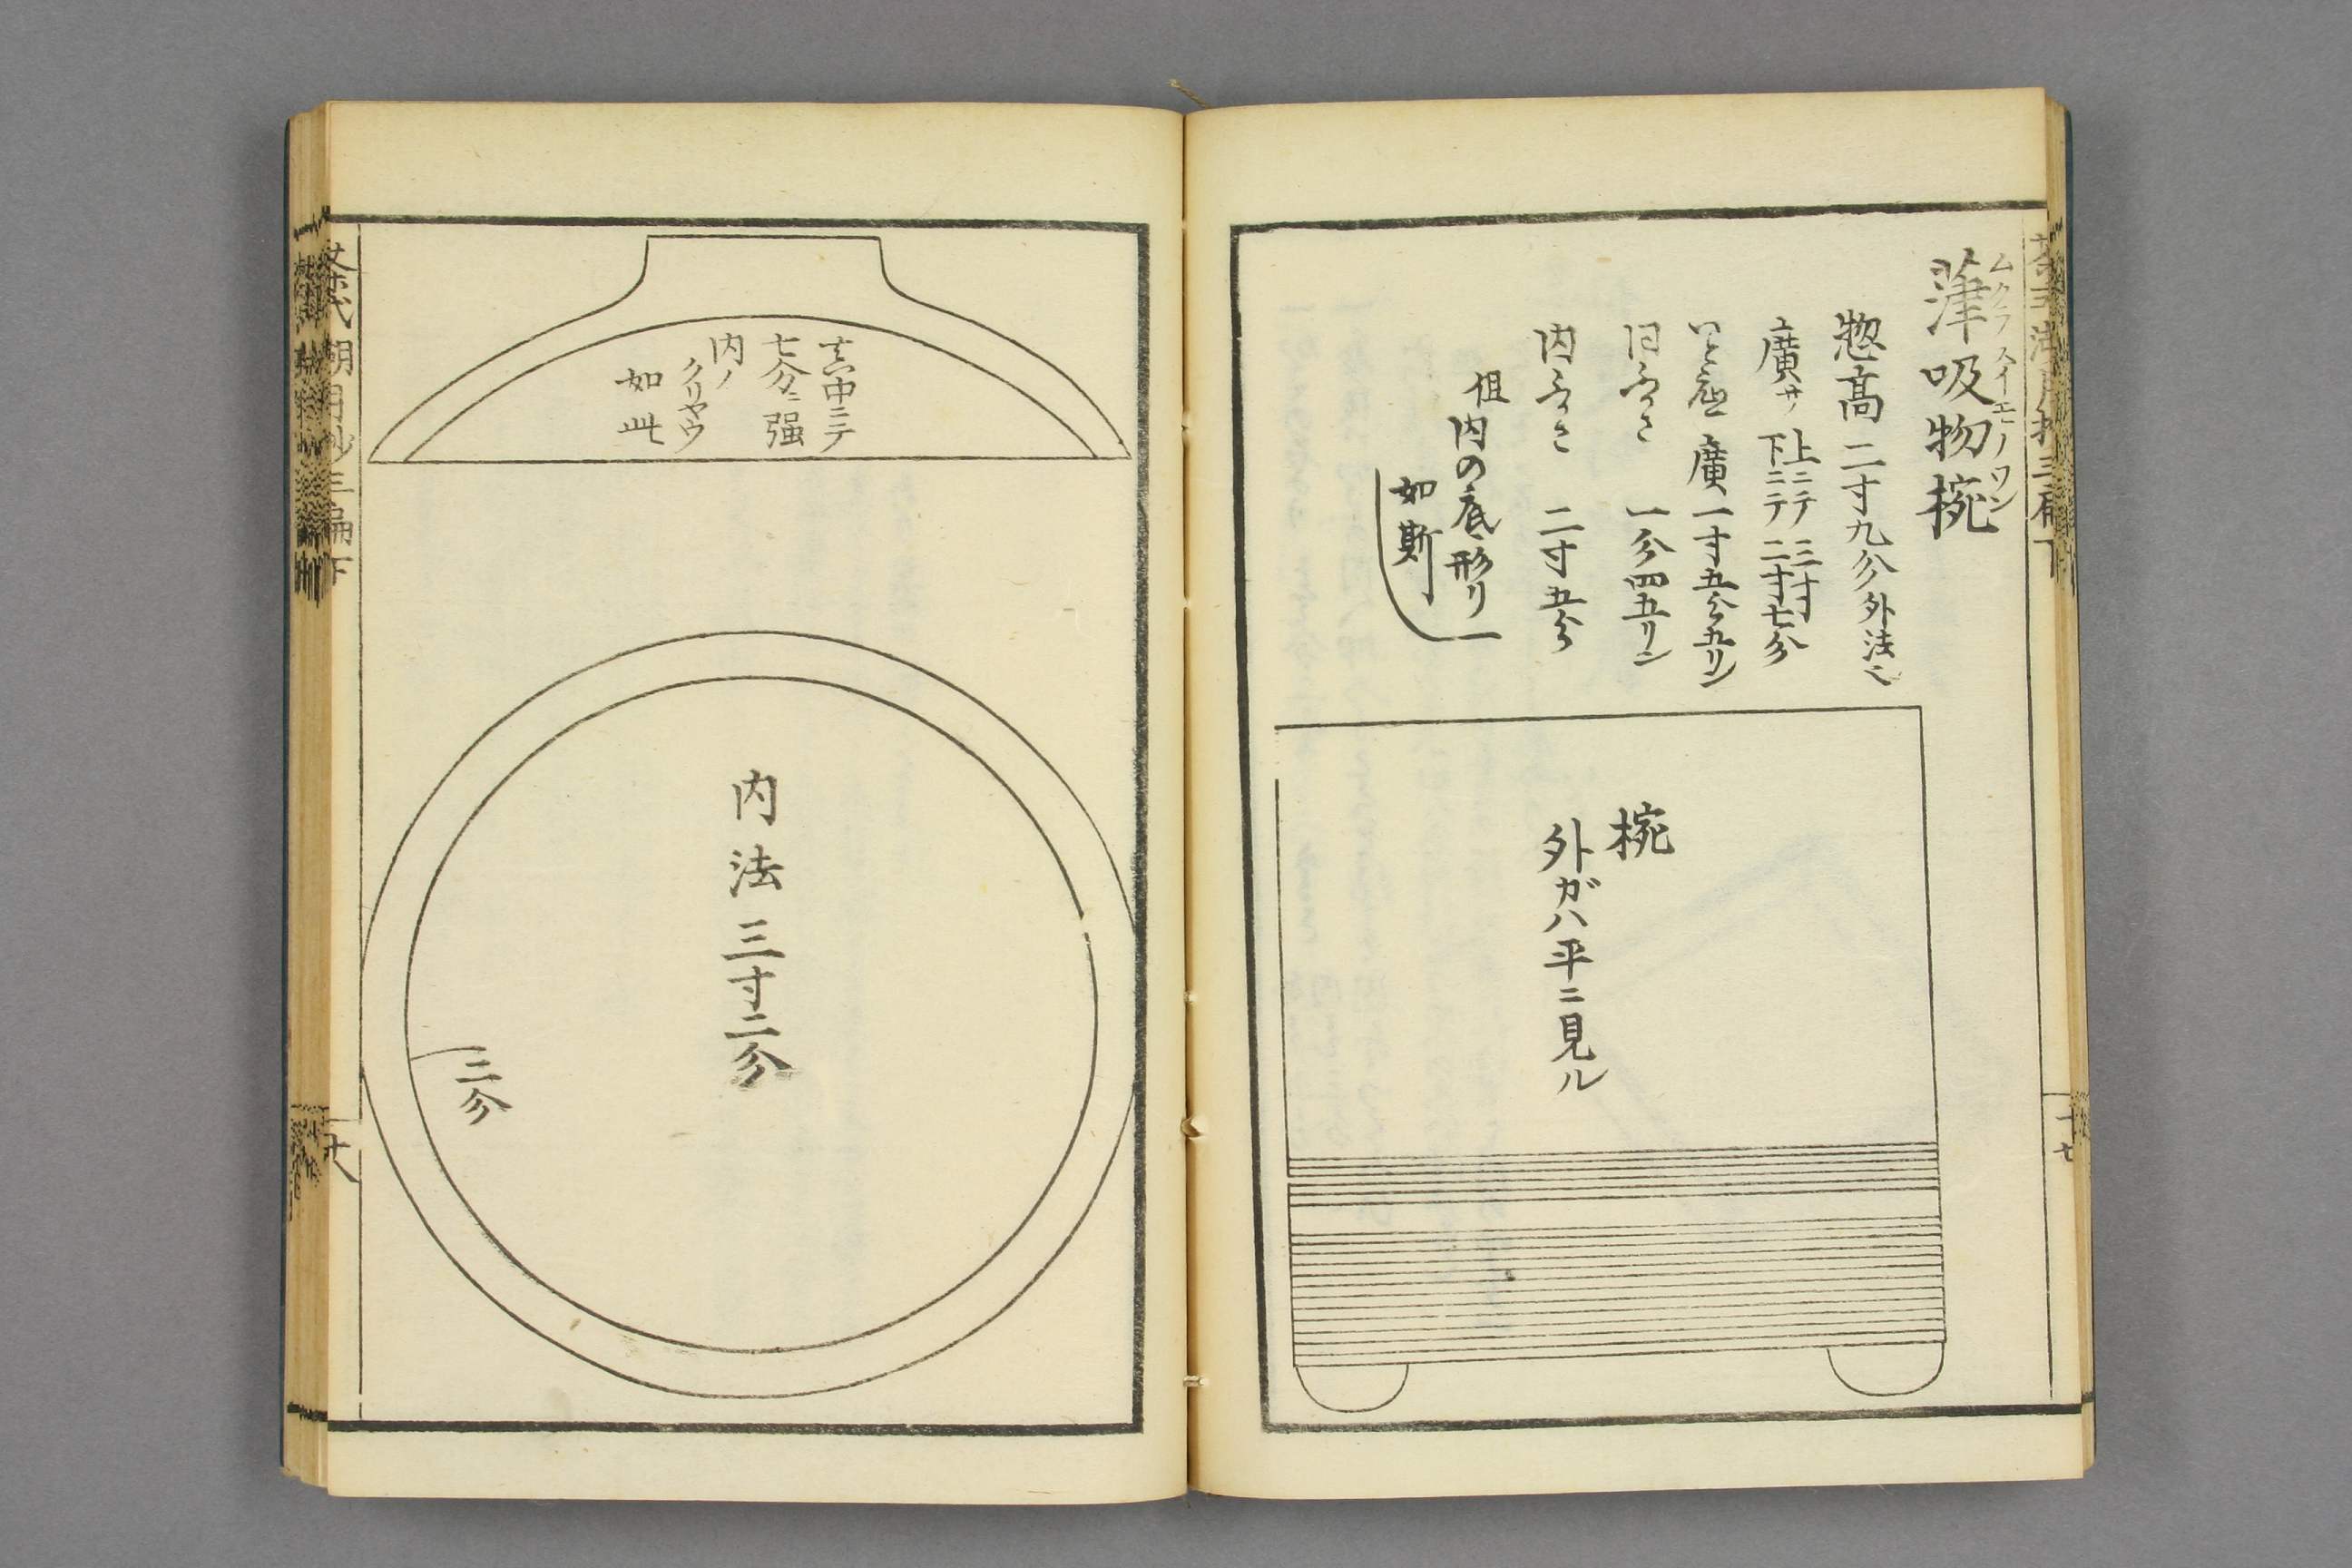 吸物椀
スイモノワン
惣高 二寸九分 外法也
廣サ 上ニテ 三寸
下ニテ 二寸七分
いと底 廣一寸五分五リン
同ふかさ 一分四五リン
内ふかさ 二寸五分
但
内の底形リ
如斯
椀
外ガハ平ニ見ル
十七
真中ニテ
七分ニ強
内ノ
クリヤウ
如此
内法 三寸二分
三分
茶式湖月抄三編下
十八